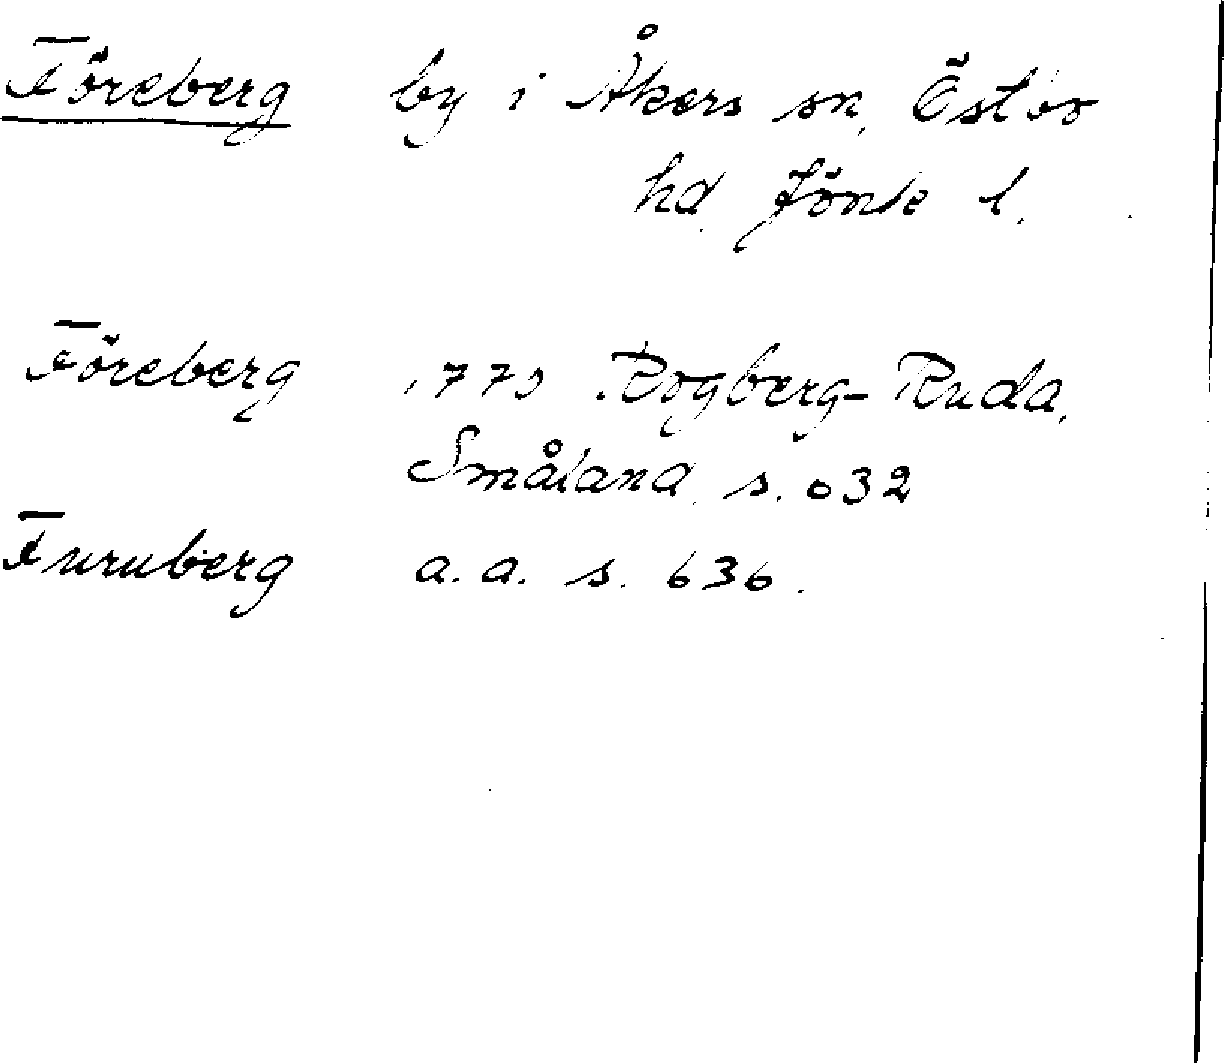 Föreberg by i Åkers sn, Östbo
hd, Jönk l.
Föreberg 1770 Rogberg-Ruda,
Småland, s. 632
Furuberg a. a. s. 636.